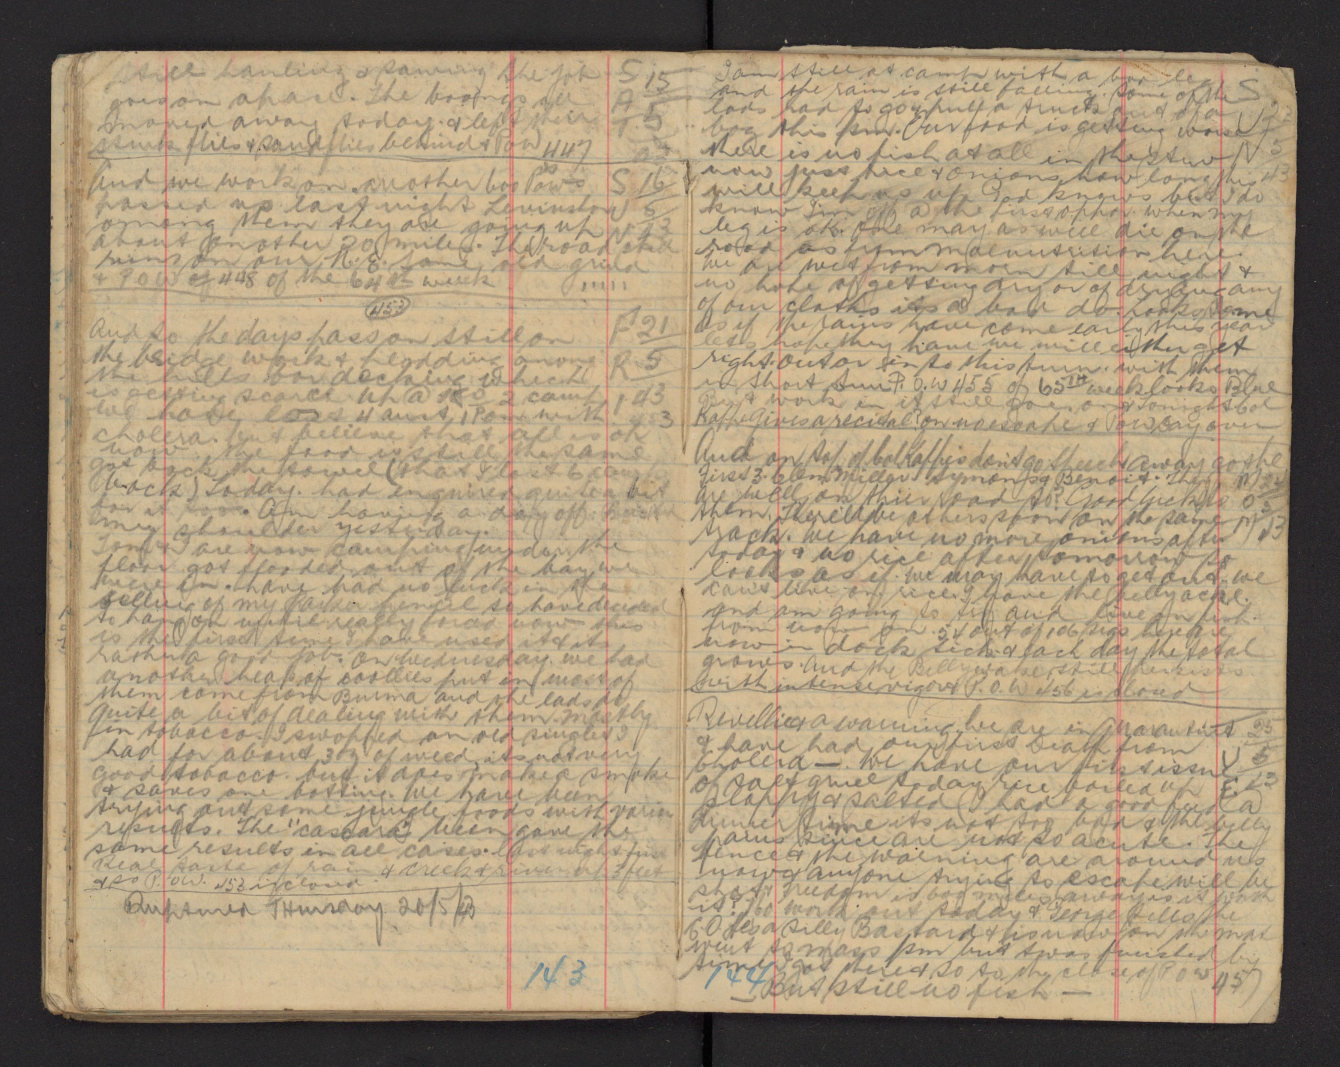 still hauling & sawing the job S 15
goes on apace. The boongs all A 5
moved away today & left their T 5
stink flies & sandflies behind & POW 447
And we work on another box POWs S 16
passed up last night Levinston U 5
among them they are going up N 43
about another 20 miles. The road
runs on our R. E. same old grind
& P.O.W of 448 of the 64th week
453
And so the days pass on still on F 21
the bridge work & among R 5
the hills for decking which
is getting scarce up at No 2 camp 1 43
we have lost 4 aust, 1 Pom with 453
cholera. but believe that all is ok
now. the food is still the same
got back the towel (that I lost
back) today. had enquired quite a bit
for it too. Am having a day off. 
my shoulder yesterday.
Tom & I are now camping under the
floor got flooded out of the bay we
were in. have had no luck in the
selling of my so have decided
to hang on until really broad now this
is the first time I have used it & its
rather a good job. on Wednesday we had
another heap of coolies put in most of
them come from Burma and the lads do
quite a bit of dealing with them mostly
in tobacco. I swopped an old singlet I
had for about 3 oz of weed its not very
good tobacco. but it does make a smoke
& saves one botting. We have been
trying out some jungle foods with various
results. The "cascara" been gave the
same results in all cases. last night first
real taste of rain & creek & river up 3 feet
& so P.O.W. 453 is cloud
Ruptured Thursday 20/5/43
143
I am still at camp with a bad leg S
and the rain is still falling. some of the
lads had to go & pull a truck out of a U
bog this pm. Our food is getting worse
there is no fish at all in the stew N
now just rice & onions how long this
will keep us up God knows but I do
know I'm off at the first ophor when my
leg is ok. One may as well die on the
road as from malnutrition here.
we are wet from morn till night &
no hope of getting dry or of drying any
of our cloths its a bad do. looks same
as if the rains have come early this year
lets hope they have we will either get
right out or in to this pm. with them
in short time P.O.W 455 of 65TH week looks Blue
but work in it still goes on & tonight Col
Kappe gives a recital POW undespake & POWs cry over
And on top of Col Kappes don't go speech away go the
first 3. Clem Miller Symons & Benoit. They M 24
are well on their road to? Good luck to O 5
them, there'll be others soon on the same N 43
track. We have no more onions after
today & no rice after tomorrow so
looks as if we may have to get out. we
can't live on rice I gave the belly ache.
and am going to try and live on fish
from now on. 24 out of 106 Sigs here are
now in dock sick & each day the total
grows. And the Bellyache still persists
with intense vigor & P.O.W 456 is cloud
Revellie & a warning we are in quarantine 25
& have had our first death from
cholera —. We have our first issue U 5
of salt gruel today rice boiled up E. 43
sloppy & salted I had a good feed a
dinner time its not too bad & the belly
pains since are not so acute. The
fence & the warning are around us
now & anyone trying to escape will be
shot & freedom is 600 miles away is it worth
it? no work out today & George tells the
C.O. hes a silly Bastard & is now on the mat
went to mass 1pm but twas finished by
time I got there & so to the close of P.O.W 457
144
— But still no fish —